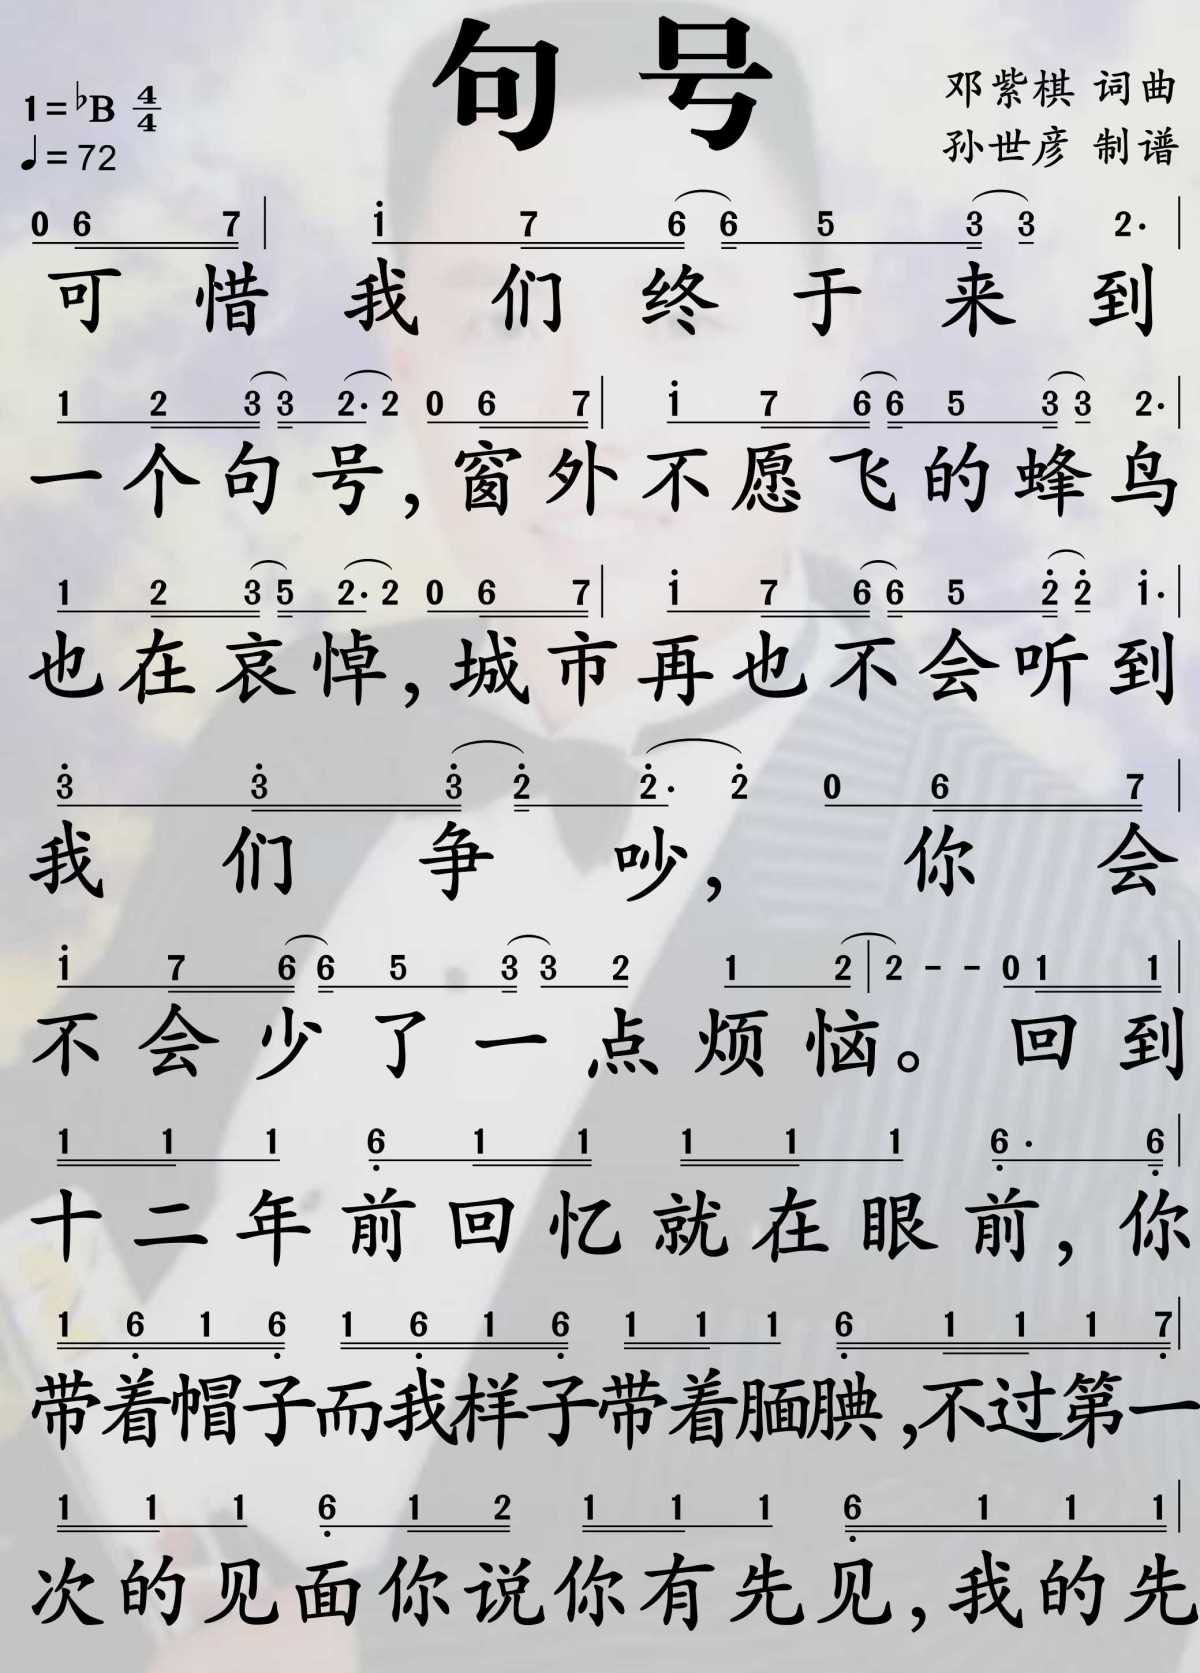 句号
1=♭B 4/4
♩=72
邓紫棋 词曲
孙世彦 制谱
0 6 7 | i 7 6 6 5 3 3 2· |
可惜我们终于来到
1 2 3 3 2· 2 0 6 7 | i 7 6 6 5 3 3 2· |
一个句号,窗外不愿飞的蜂鸟
1 2 3 5 2· 2 0 6 7 | i 7 6 6 5 2̇ 2̇ i· |
也在哀悼,城市再也不会听到
3̇ 3̇ 3̇ 2̇ 2̇· 2̇ 0 6 7 |
我们争吵,你会
i 7 6 6 5 3 3 2 1 2 | 2 - - 0 1 1 |
不会少了一点烦恼。回到
1 1 1 6̣ 1 1 1 1 1 6̣· 6̣ |
十二年前回忆就在眼前,你
1 6̣ 1 6̣ 1 6̣ 1 6̣ 1 1 1 6̣ 1 1 1 7̣ |
带着帽子而我样子带着腼腆,不过第一
1 1 1 6̣ 1 2 1 1 1 6̣ 1 1 1 |
次的见面你说你有先见,我的先